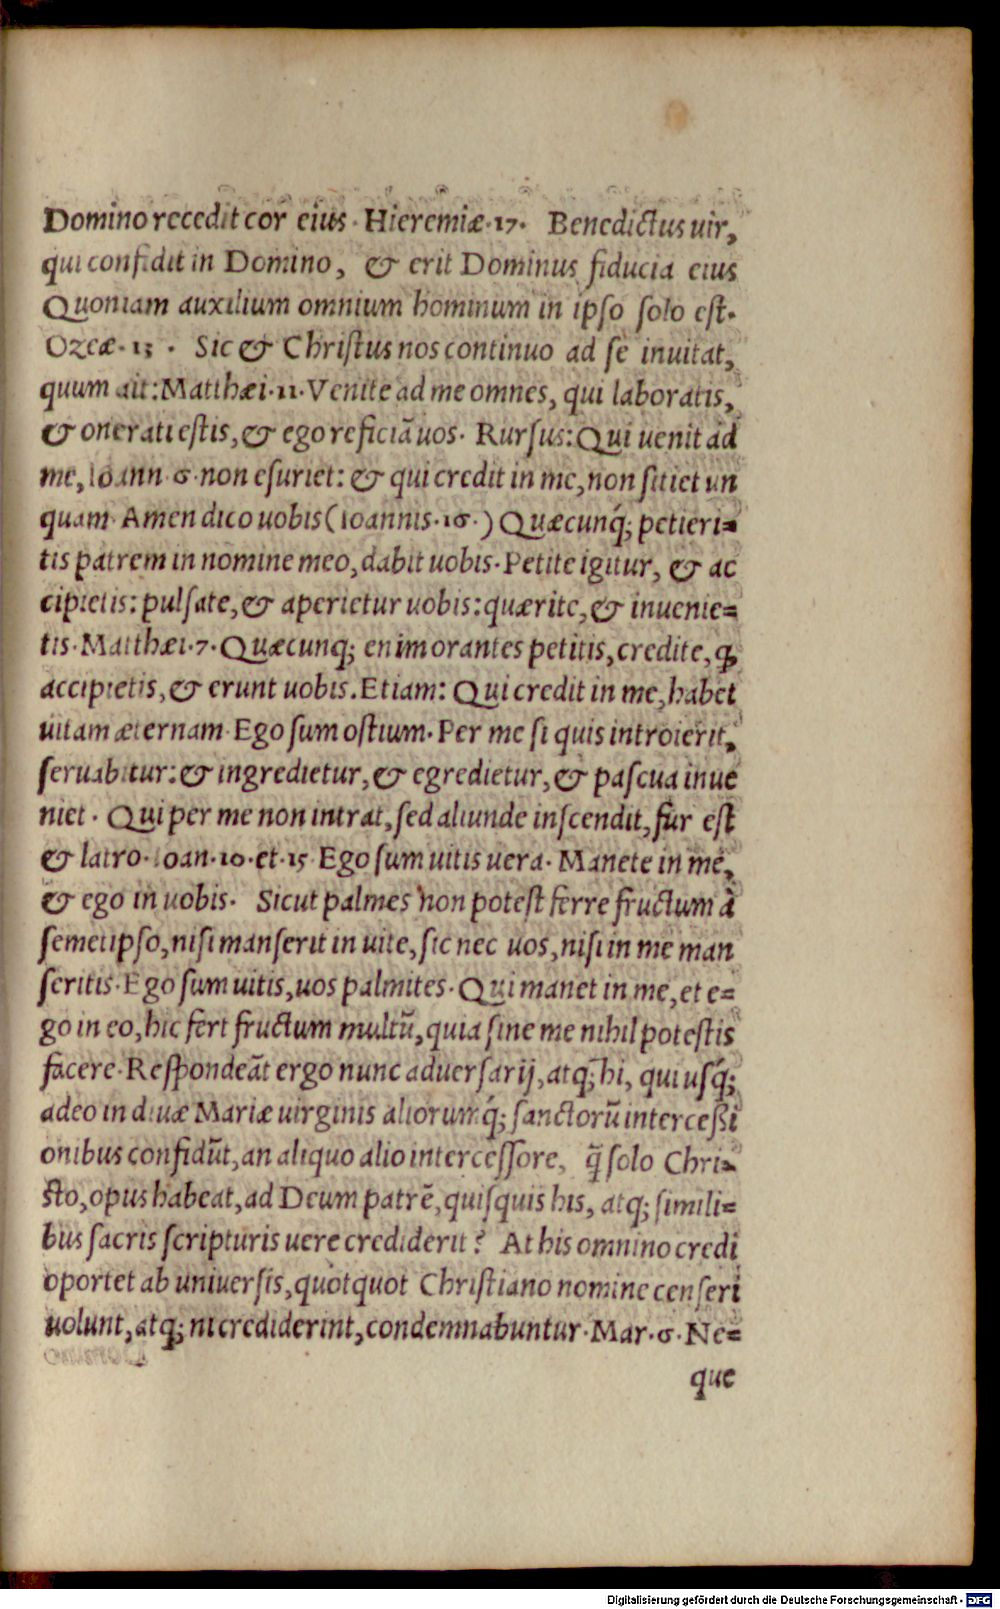 Domino recedit cor eius · Hieremiæ · 17 · Benedictus uir,
qui confidit in Domino, & erit Dominus fiducia eius
Quoniam auxilium omnium hominum in ipso solo est.
Ozeæ · 13 · Sic & Christus nos continuo ad se inuitat,
quum ait: Matthæi · 11 · Venite ad me omnes, qui laboratis,
& onerati estis, & ego reficiã uos · Rursus: Qui uenit ad
me, Ioann · 6 · non esuriet: & qui credit in me, non sitiet un
quam · Amen dico uobis (Ioannis · 16 ·) Quæcunq́; petieri=
tis patrem in nomine meo, dabit uobis · Petite igitur, & ac
cipietis: pulsate, & aperietur uobis: quærite, & inuenie=
tis · Matthæi · 7 · Quæcunq; enim orantes petitis, credite, ꝙ
accipietis, & erunt uobis. Etiam: Qui credit in me, habet
uitam æternam · Ego sum ostium · Per me si quis introierit,
seruabitur: & ingredietur, & egredietur, & pascua inue
niet · Qui per me non intrat, sed aliunde inscendit, fur est
& latro · Ioan · 10 · et · 15 Ego sum uitis uera · Manete in me,
& ego in uobis · Sicut palmes non potest ferre fructum à
semetipso, nisi manserit in uite, sic nec uos, nisi in me man
seritis · Ego sum uitis, uos palmites · Qui manet in me, et e=
go in eo, hic fert fructum multũ, quia sine me nihil potestis
facere · Respondeãt ergo nunc aduersarij, atq; hi, qui usq́;
adeo in diuæ Mariæ uirginis aliorumq́; sanctorũ interceßi
onibus confidũt, an aliquo alio intercessore, q̃ solo Chri=
sto, opus habeat, ad Deum patrẽ, quisquis his, atq; simili=
bus sacris scripturis uere crediderit? At his omnino credi
oportet ab uniuersis, quotquot Christiano nomine censeri
uolunt, atq; ni crediderint, condemnabuntur · Mar · 6 · Ne=
que
Digitalisierung gefördert durch die Deutsche Forschungsgemeinschaft - DFG